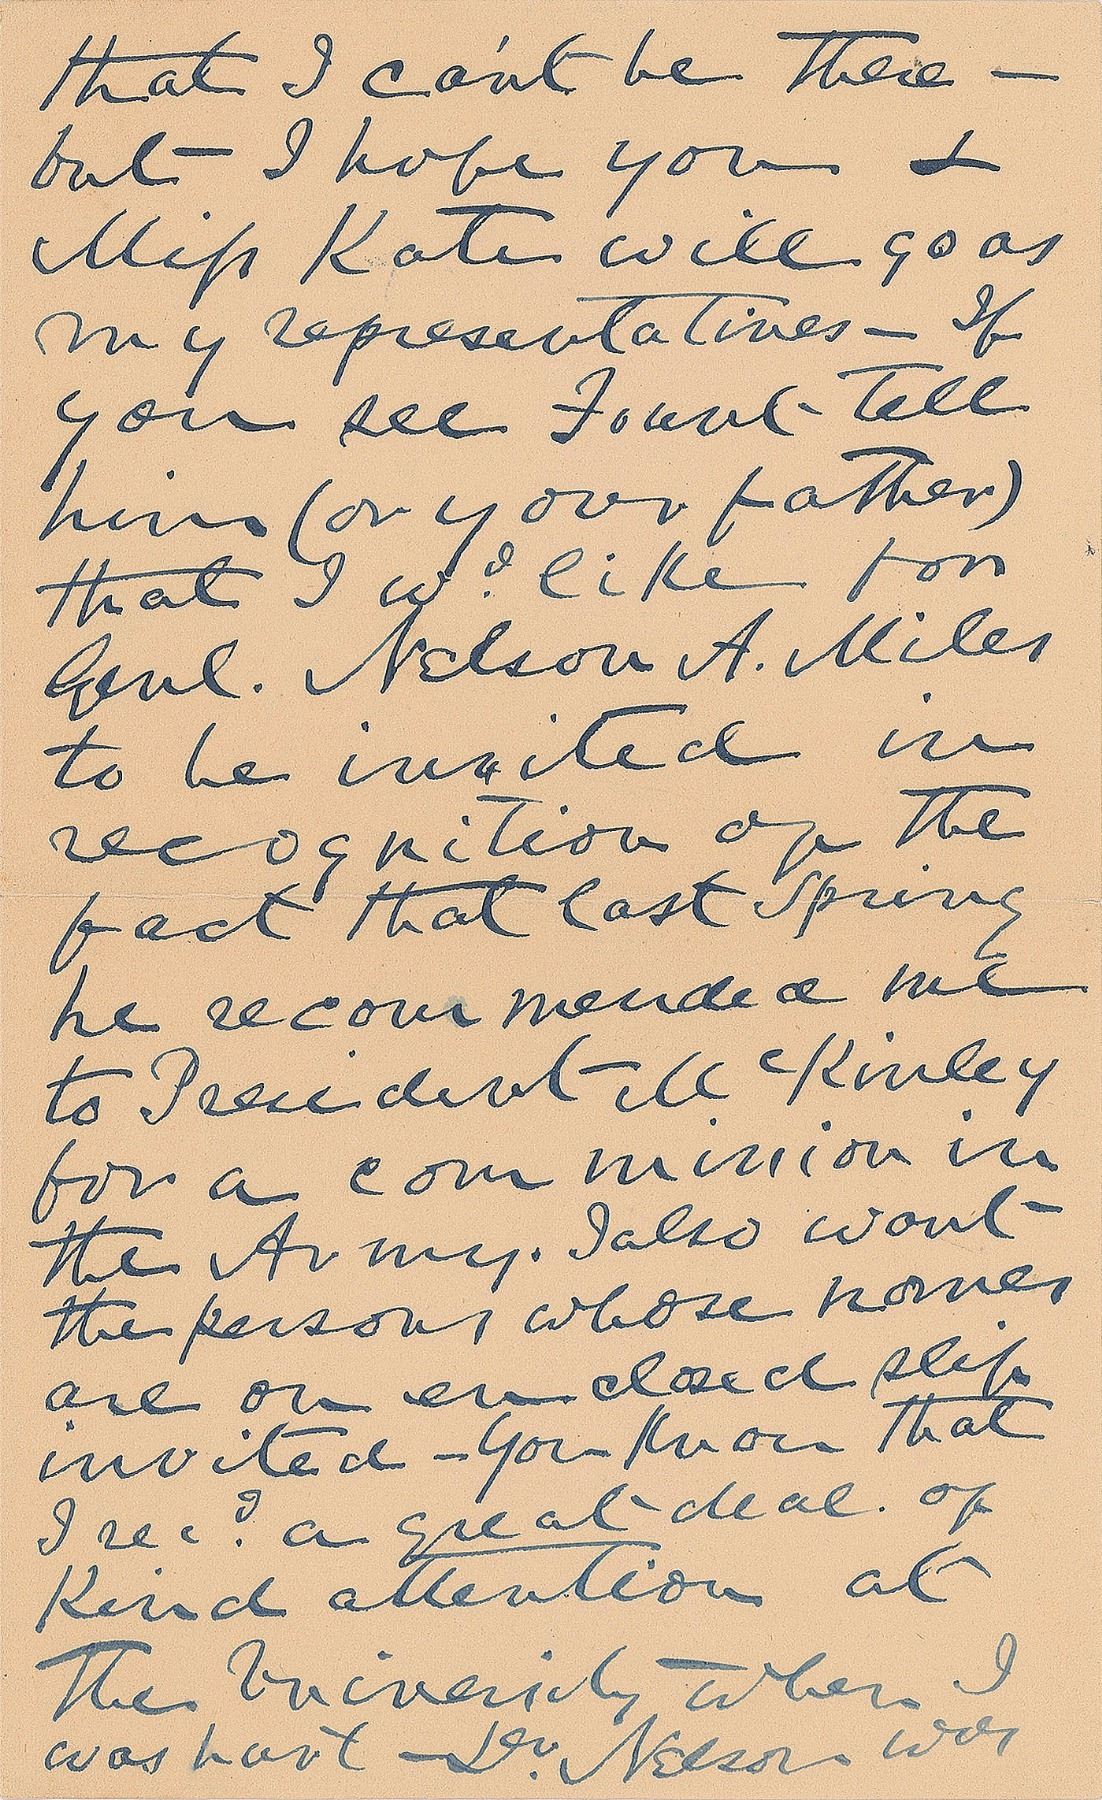 that I can't be there —
but — I hope you &
Miss Kate will go as
my representatives — If
you see Fount tell
him (or your father)
that I wd. like for
Genl. Nelson A. Miles
to be invited in
recognition of the
fact that last Spring
he recommended me
to President McKinley
for a commission in
the Army. I also want
the persons whose names
are on enclosed slip
invited — You know that
I recd. a great deal of
kind attention at
the University when I
was hurt — Dr. Nelson was